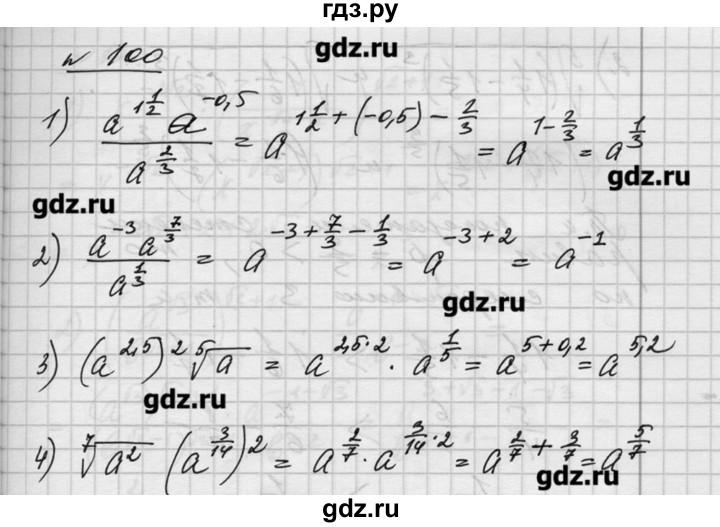 гдз.ру
gdz.ru
№ 100
1) (a^(1 1/2) a^(-0,5)) / a^(2/3) = a^(1 1/2 + (-0,5) - 2/3) = a^(1 - 2/3) = a^(1/3)
gdz.ru
gdz.ru
2) (a^(-3) a^(7/3)) / a^(1/3) = a^(-3 + 7/3 - 1/3) = a^(-3 + 2) = a^(-1)
gdz.ru
3) (a^(2,5))^2 ⁵√a = a^(2,5·2) · a^(1/5) = a^(5 + 0,2) = a^(5,2)
gdz.ru
4) ⁷√(a^2) (a^(3/14))^2 = a^(2/7) · a^(3/14·2) = a^(2/7 + 3/7) = a^(5/7)
gdz.ru
gdz.ru